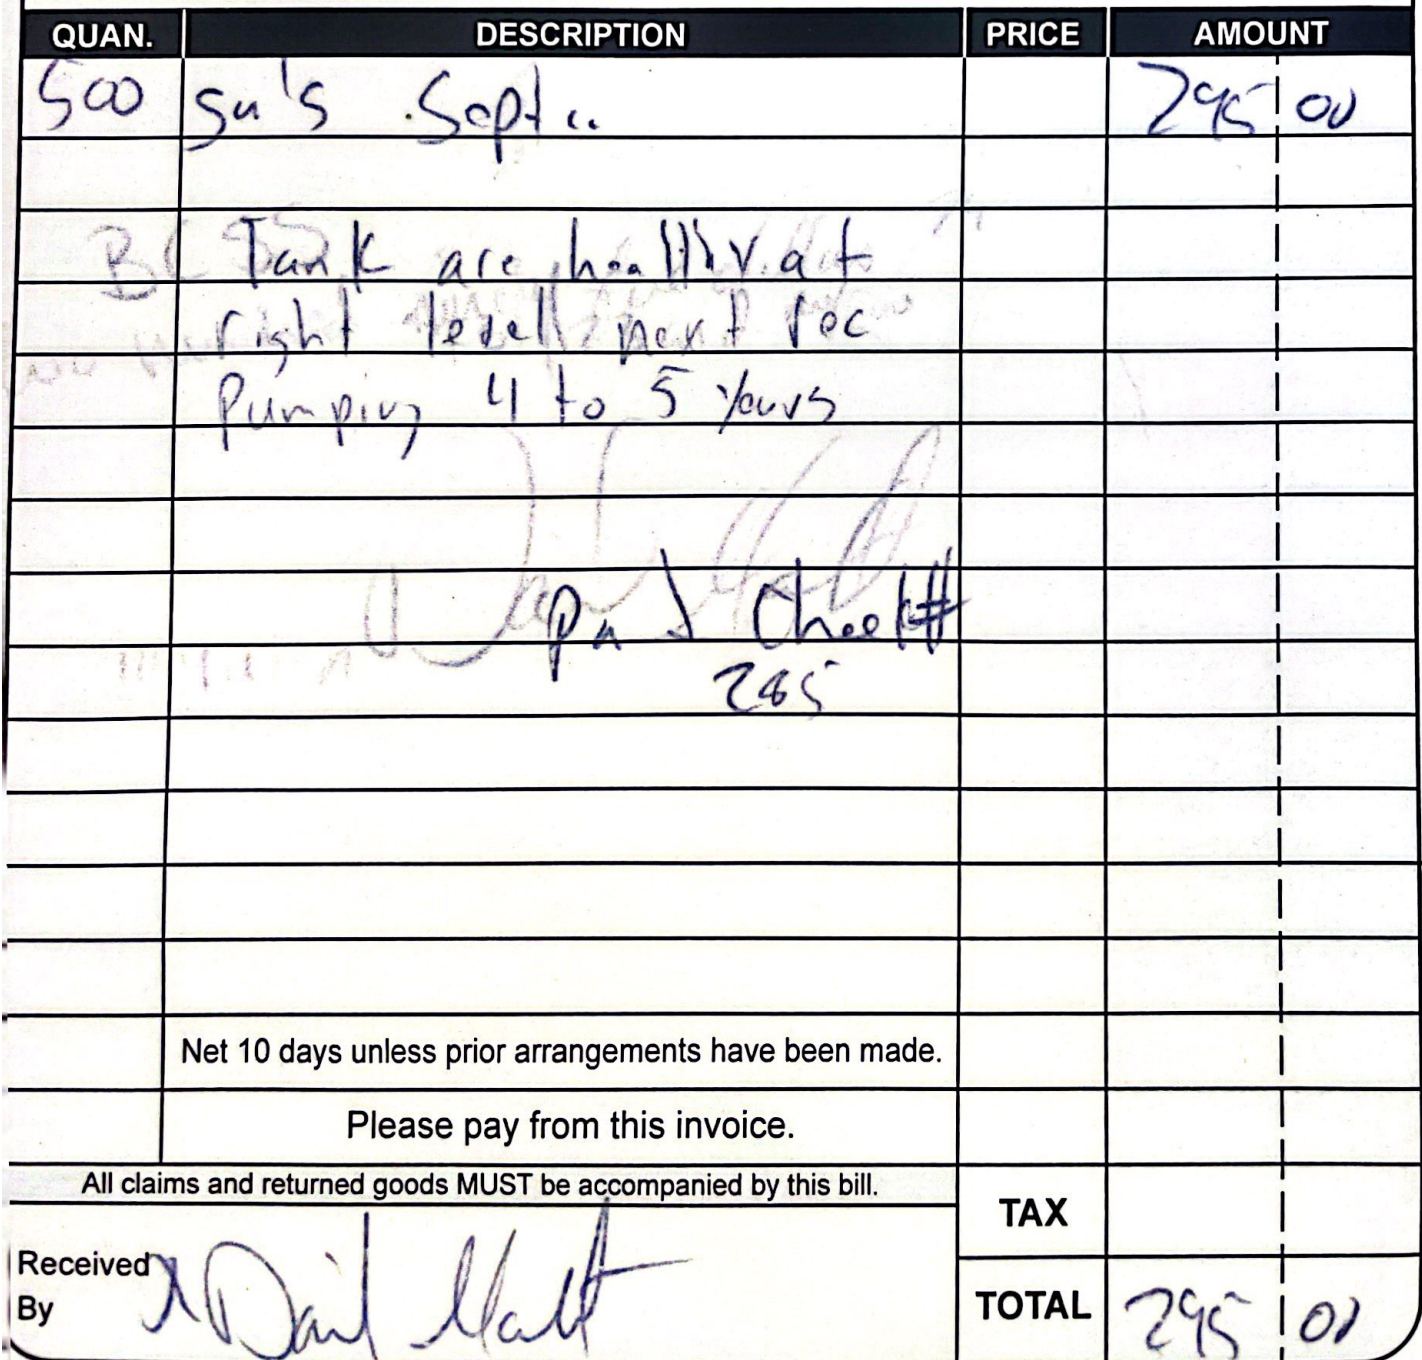 QUAN. DESCRIPTION PRICE AMOUNT
500 Septic 295 00
Tank are healthy at
right level next rec
Pumping 4 to 5 years
Paid Check#
285
Net 10 days unless prior arrangements have been made.
Please pay from this invoice.
All claims and returned goods MUST be accompanied by this bill.
TAX
Received
By
TOTAL 295 00